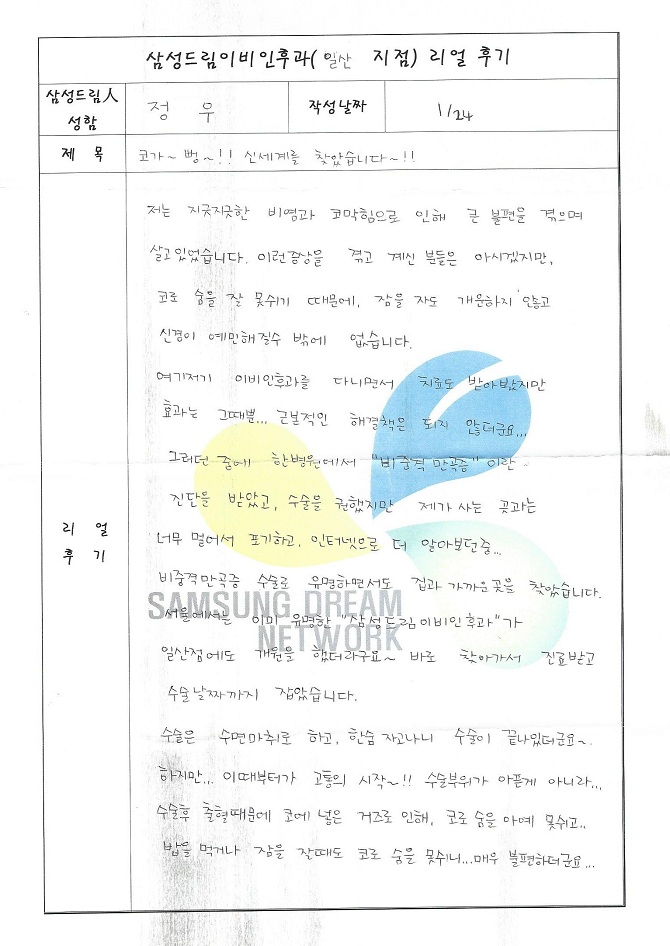 삼성드림이비인후과( 일산 지점) 리얼 후기
삼성드림人 성함
정 우
작성날짜
1/24
제 목
코가~ 뻥~!! 신세계를 찾았습니다~!!
리 얼
후 기
저는 지긋지긋한 비염과 코막힘으로 인해 큰 불편을 겪으며
살고있었습니다. 이런증상을 겪고 계신 분들은 아시겠지만,
코로 숨을 잘 못쉬기 때문에, 잠을 자도 개운하지 안흫고
신경이 예민해질수 밖에 없습니다.
여기저기 이비인후과를 다니면서 치료도 받아봤지만
효과는 그때뿐... 근본적인 해결책은 되지 않더군요...
그러던 중에 한병원에서 "비중격 만곡증" 이란~
진단을 받았고, 수술을 권했지만 제가 사는 곳과는
너무 멀어서 포기하고, 인터넷으로 더 알아보던중...
비중격만곡증 수술로 유명하면서도 집과 가까운곳을 찾았습니다.
서울에서는 이미 유명한 "삼성드림이비인후과"가
일산점에도 개원을 했더라구요~ 바로 찾아가서 진료받고
수술날짜까지 잡았습니다.
수술은 수면마취로 하고, 한숨 자고나니 수술이 끝나있더군요~
하지만... 이때부터가 고통의 시작~!! 수술부위가 아픈게 아니라...
수술후 출혈때문에 코에 넣은 거즈로 인해, 코로 숨을 아예 못쉬고..
밥을 먹거나 잠을 잘때도 코로 숨을 못쉬니...매우 불편하더군요...
SAMSUNG DREAM
NETWORK